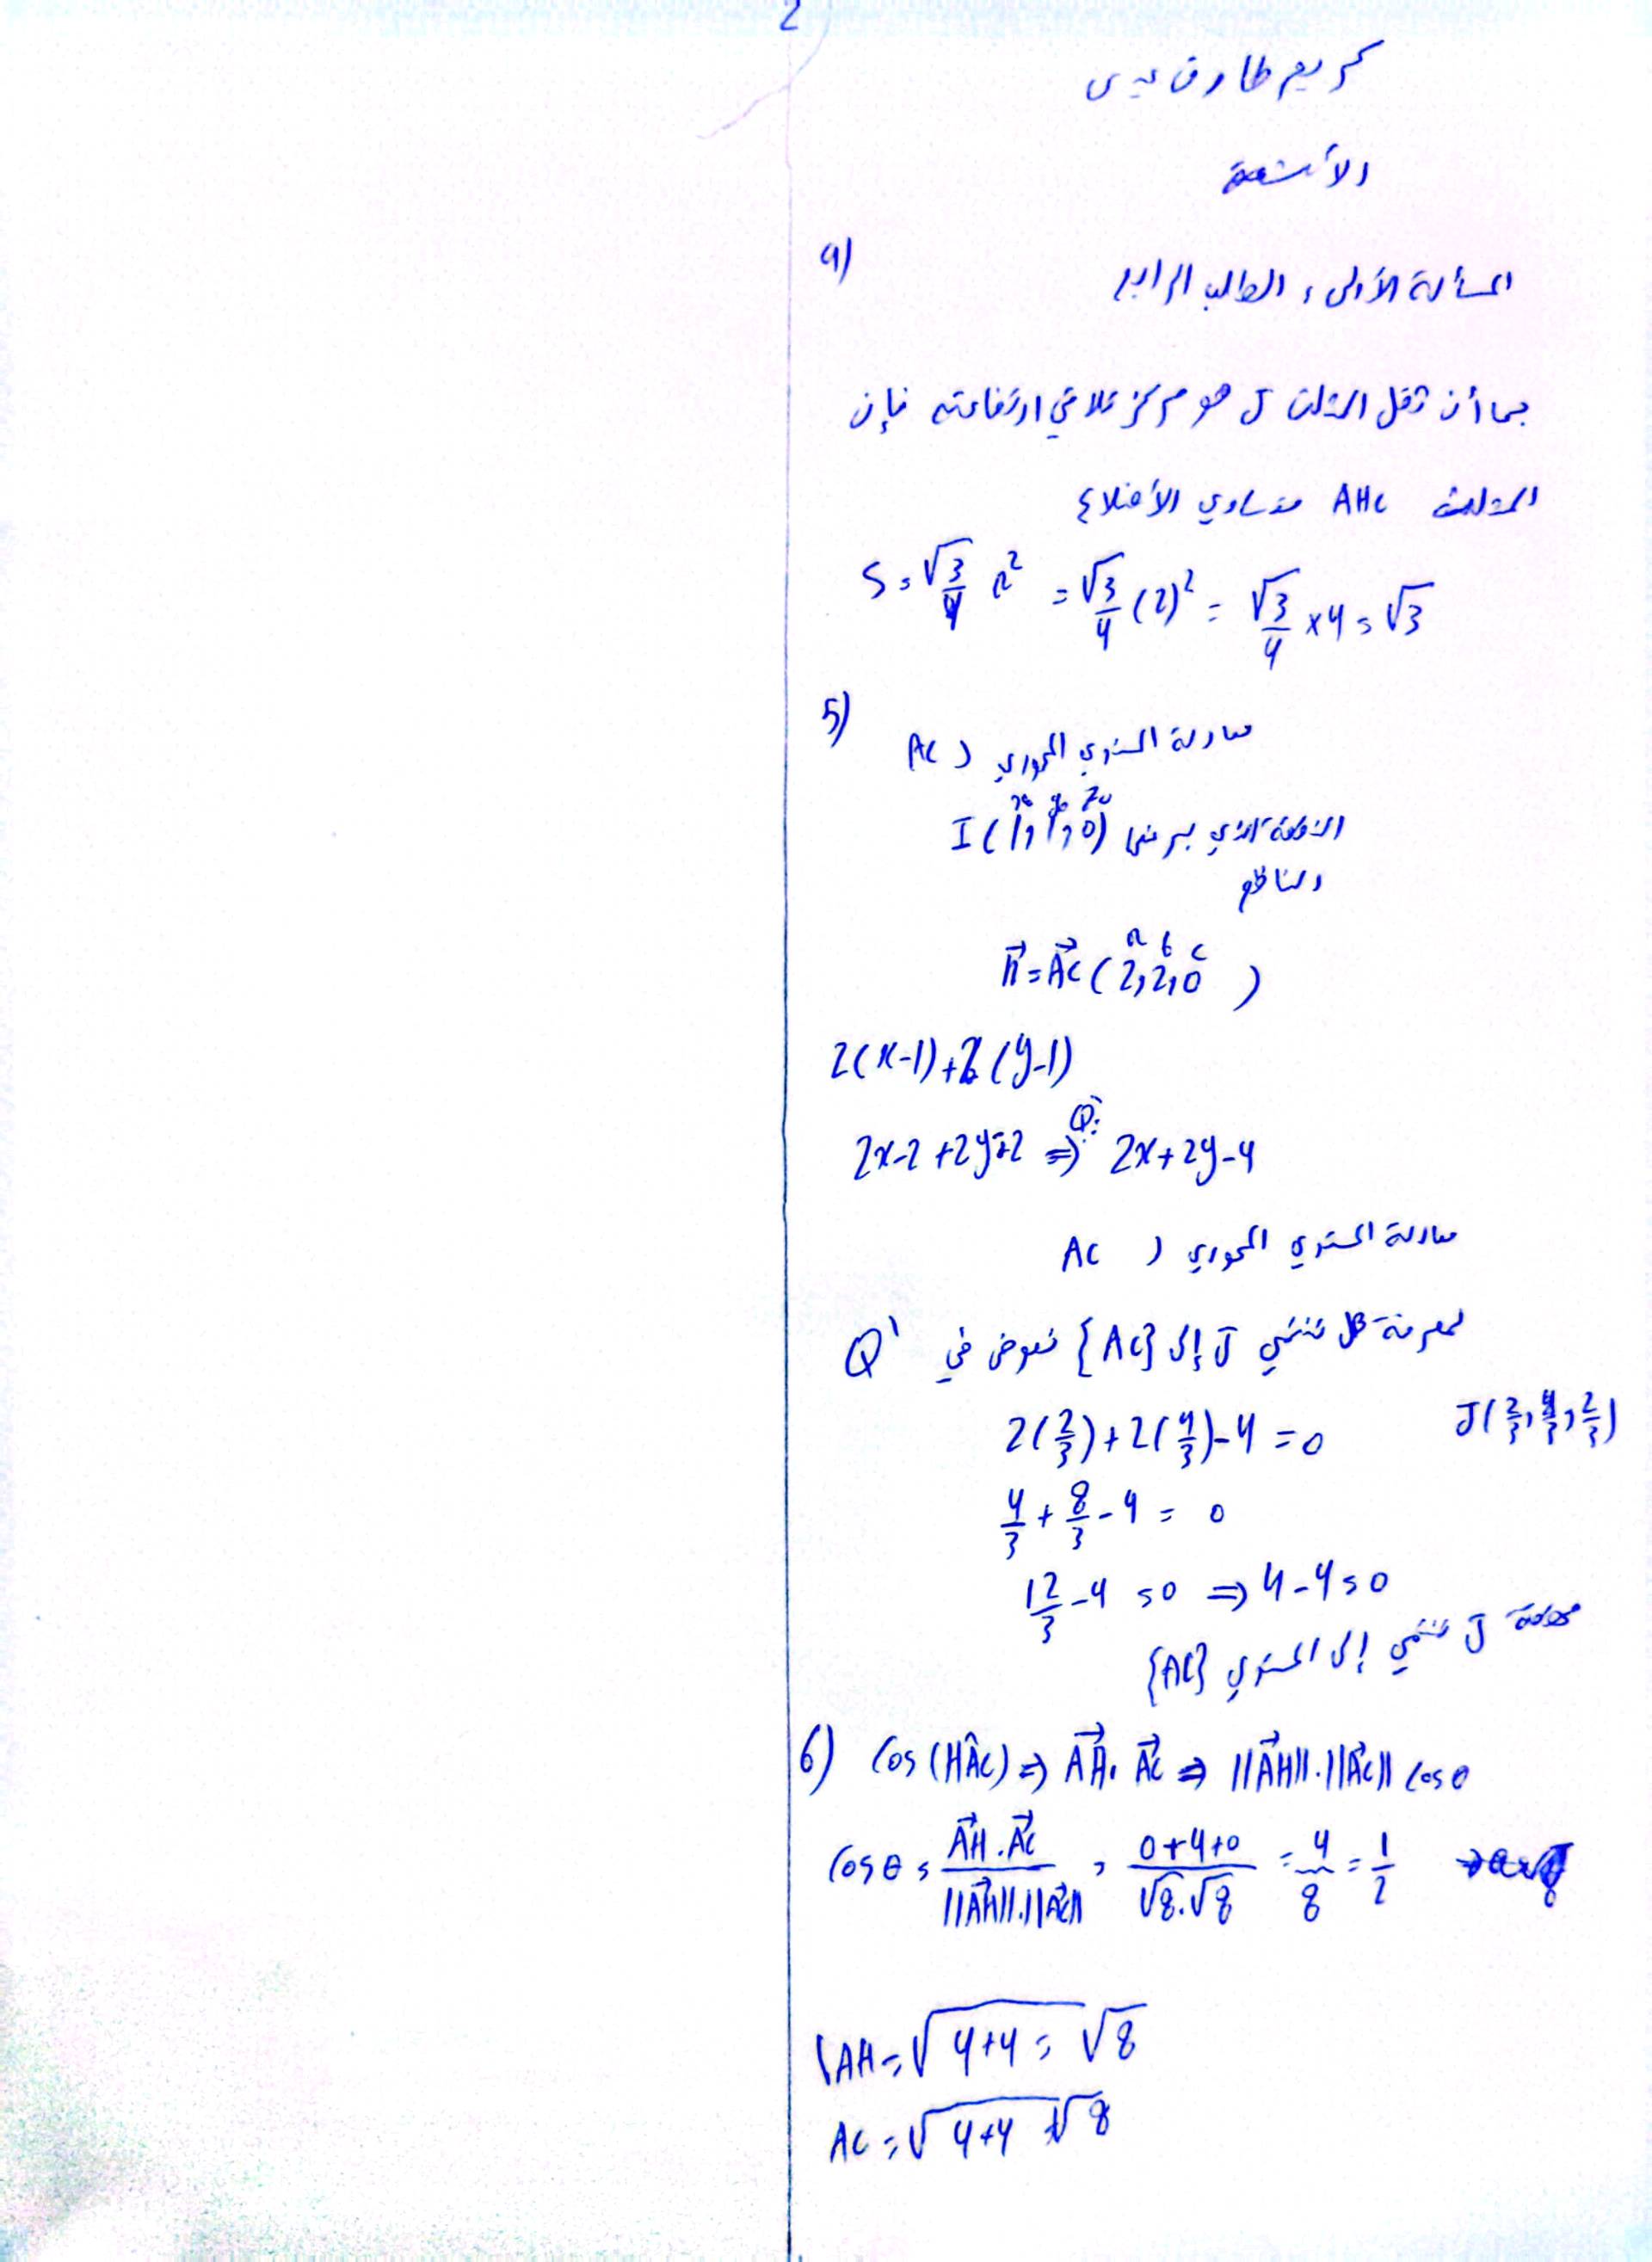 2
كريم طارق عيسى
الأشعة
4)
المسألة الأولى، الطلب الرابع
بما أن ثقل المثلث J هو مركز تلاقي ارتفاعاته فإن
المثلث AHC متساوي الأضلاع
S = √3/4 a² = √3/4 (2)² = √3/4 × 4 = √3
5)
معادلة المستوي المحوري لـ AC
النقطة الذي يمر منها I(1, 1, 0)
x₀ y₀ z₀
والناظم
a b c
n⃗ = AC⃗ (2, 2, 0)
2(x-1)+2(y-1)
2x-2+2y-2 ⇒ Q': 2x+2y-4
معادلة المستوي المحوري لـ AC
لمعرفة هل تنتمي J إلى {AC} نعوض في Q'
2(2/3)+2(4/3)-4 = 0 J(2/3, 4/3, 2/3)
4/3 + 8/3 - 4 = 0
12/3 - 4 = 0 ⇒ 4-4 = 0
J تنتمي إلى المستوي {AC}
6) Cos(HÂC) ⇒ AH⃗ . AC⃗ ⇒ ||AH⃗||.||AC⃗|| cos θ
Cos θ = AH⃗.AC⃗ / ||AH⃗||.||AC⃗|| = 0+4+0 / √8.√8 = 4/8 = 1/2
AH = √4+4 = √8
AC = √4+4 = √8